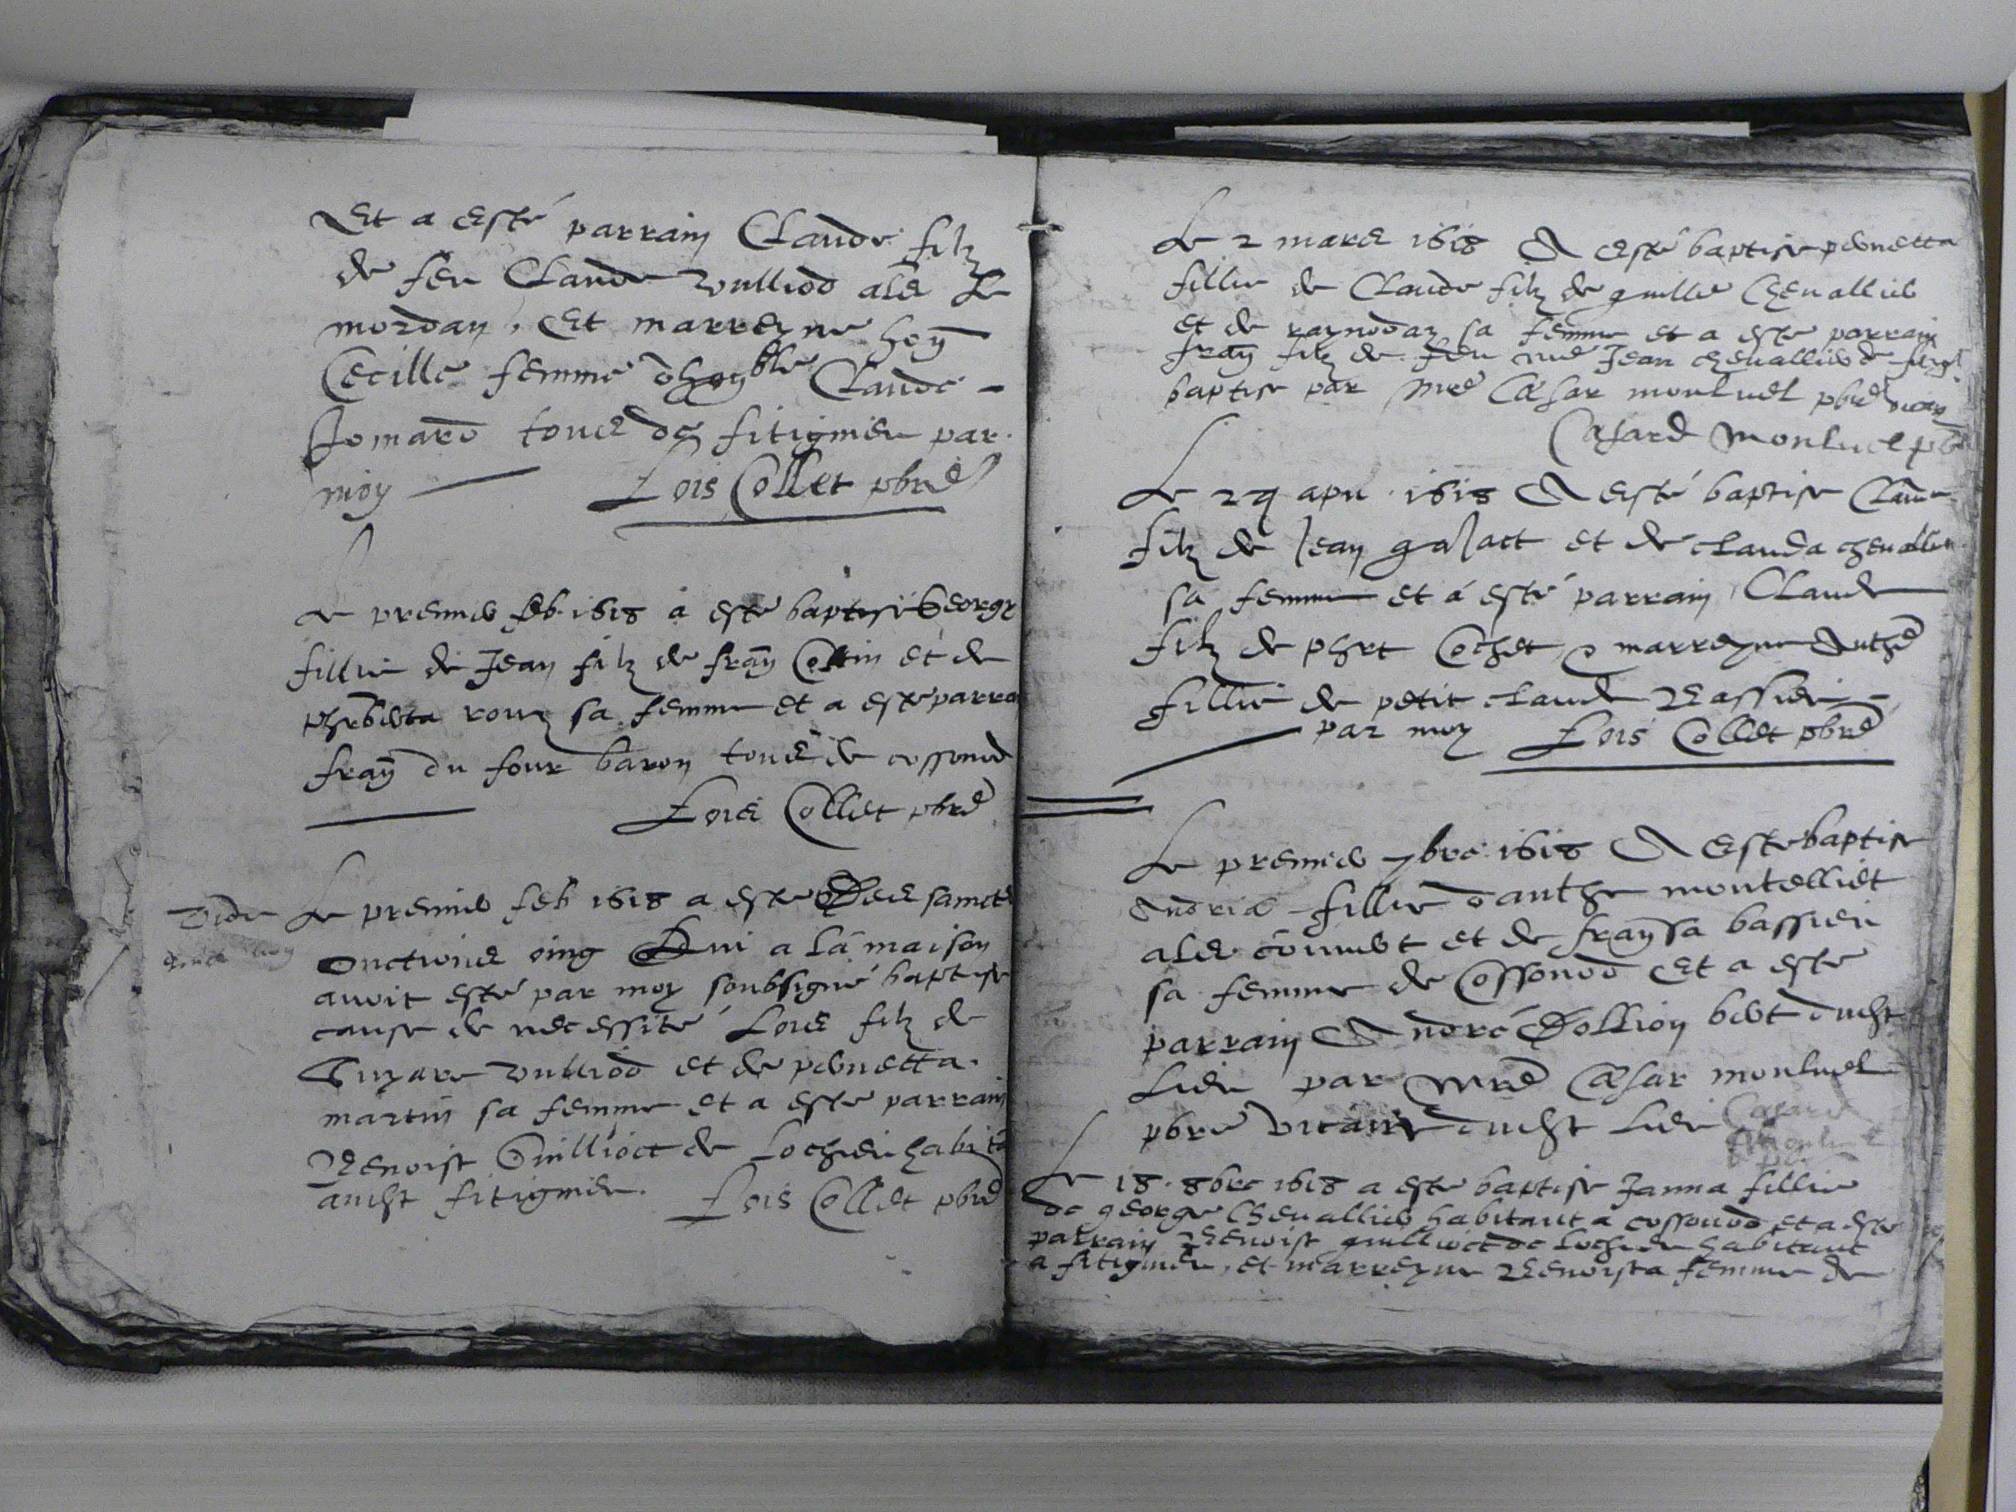 Et a esté parrain Claude filz
de feu Claude vulliod als Le
mordan, Et marreyne hon
Cecille femme dhonble Claude
Jomard tous de fitignieu par
moy Lois Collet pbre
Le premier feb. 1618 a esté baptisé George
fillie de Jean filz de fran Collin et de
sa femme et a esté parra
fran du four baron tous de cossonod
Lois Collet pbre
Le premier feb 1618 a esté sainctes
onctions oing Qui a la maison
avoit esté par moy soubsigné baptise
cause de necessité Lois filz de
vulliod et de pernetta
martin sa femme et a esté parrain
Benoist Guillioct de Lochieu habita
audit fitignieu. Lois Collet pbre
Le 2 mars 1618 A esté baptise pernetta
fillie de Claude filz de guille Chevallier
et de sa femme et a este parrain
fran filz de feu Jean chevallier de
baptise par Mre Cesar monluel pbre
Cesard Monluel pbr
Le 24 apu. 1618 A esté baptise Claude
filz de Jean et de Clauda chevallier
sa femme et a esté parrain Claude
filz de phrt Cochet & marreyne Anthe
fillie de petit Claude Bassieu
par moy Lois Collet pbre
Le premier 7bre 1618 A esté baptise
Andria fillie danthe montelliet
als et de fransa bassieu
sa femme de Cossonod Et a esté
parrain André Dollion dudit
Lieu par Mre Cesar monluel
pbre vicaire dudit Lieu Cesard
Monluel
Le 18. 8bre 1618 a esté baptise Janna fillie
de george Chevallier habitant a cossonod et a esté
parrain Benoist guillioct de Lochieu habitant
a fitignieu, et marreyne Benoista femme de